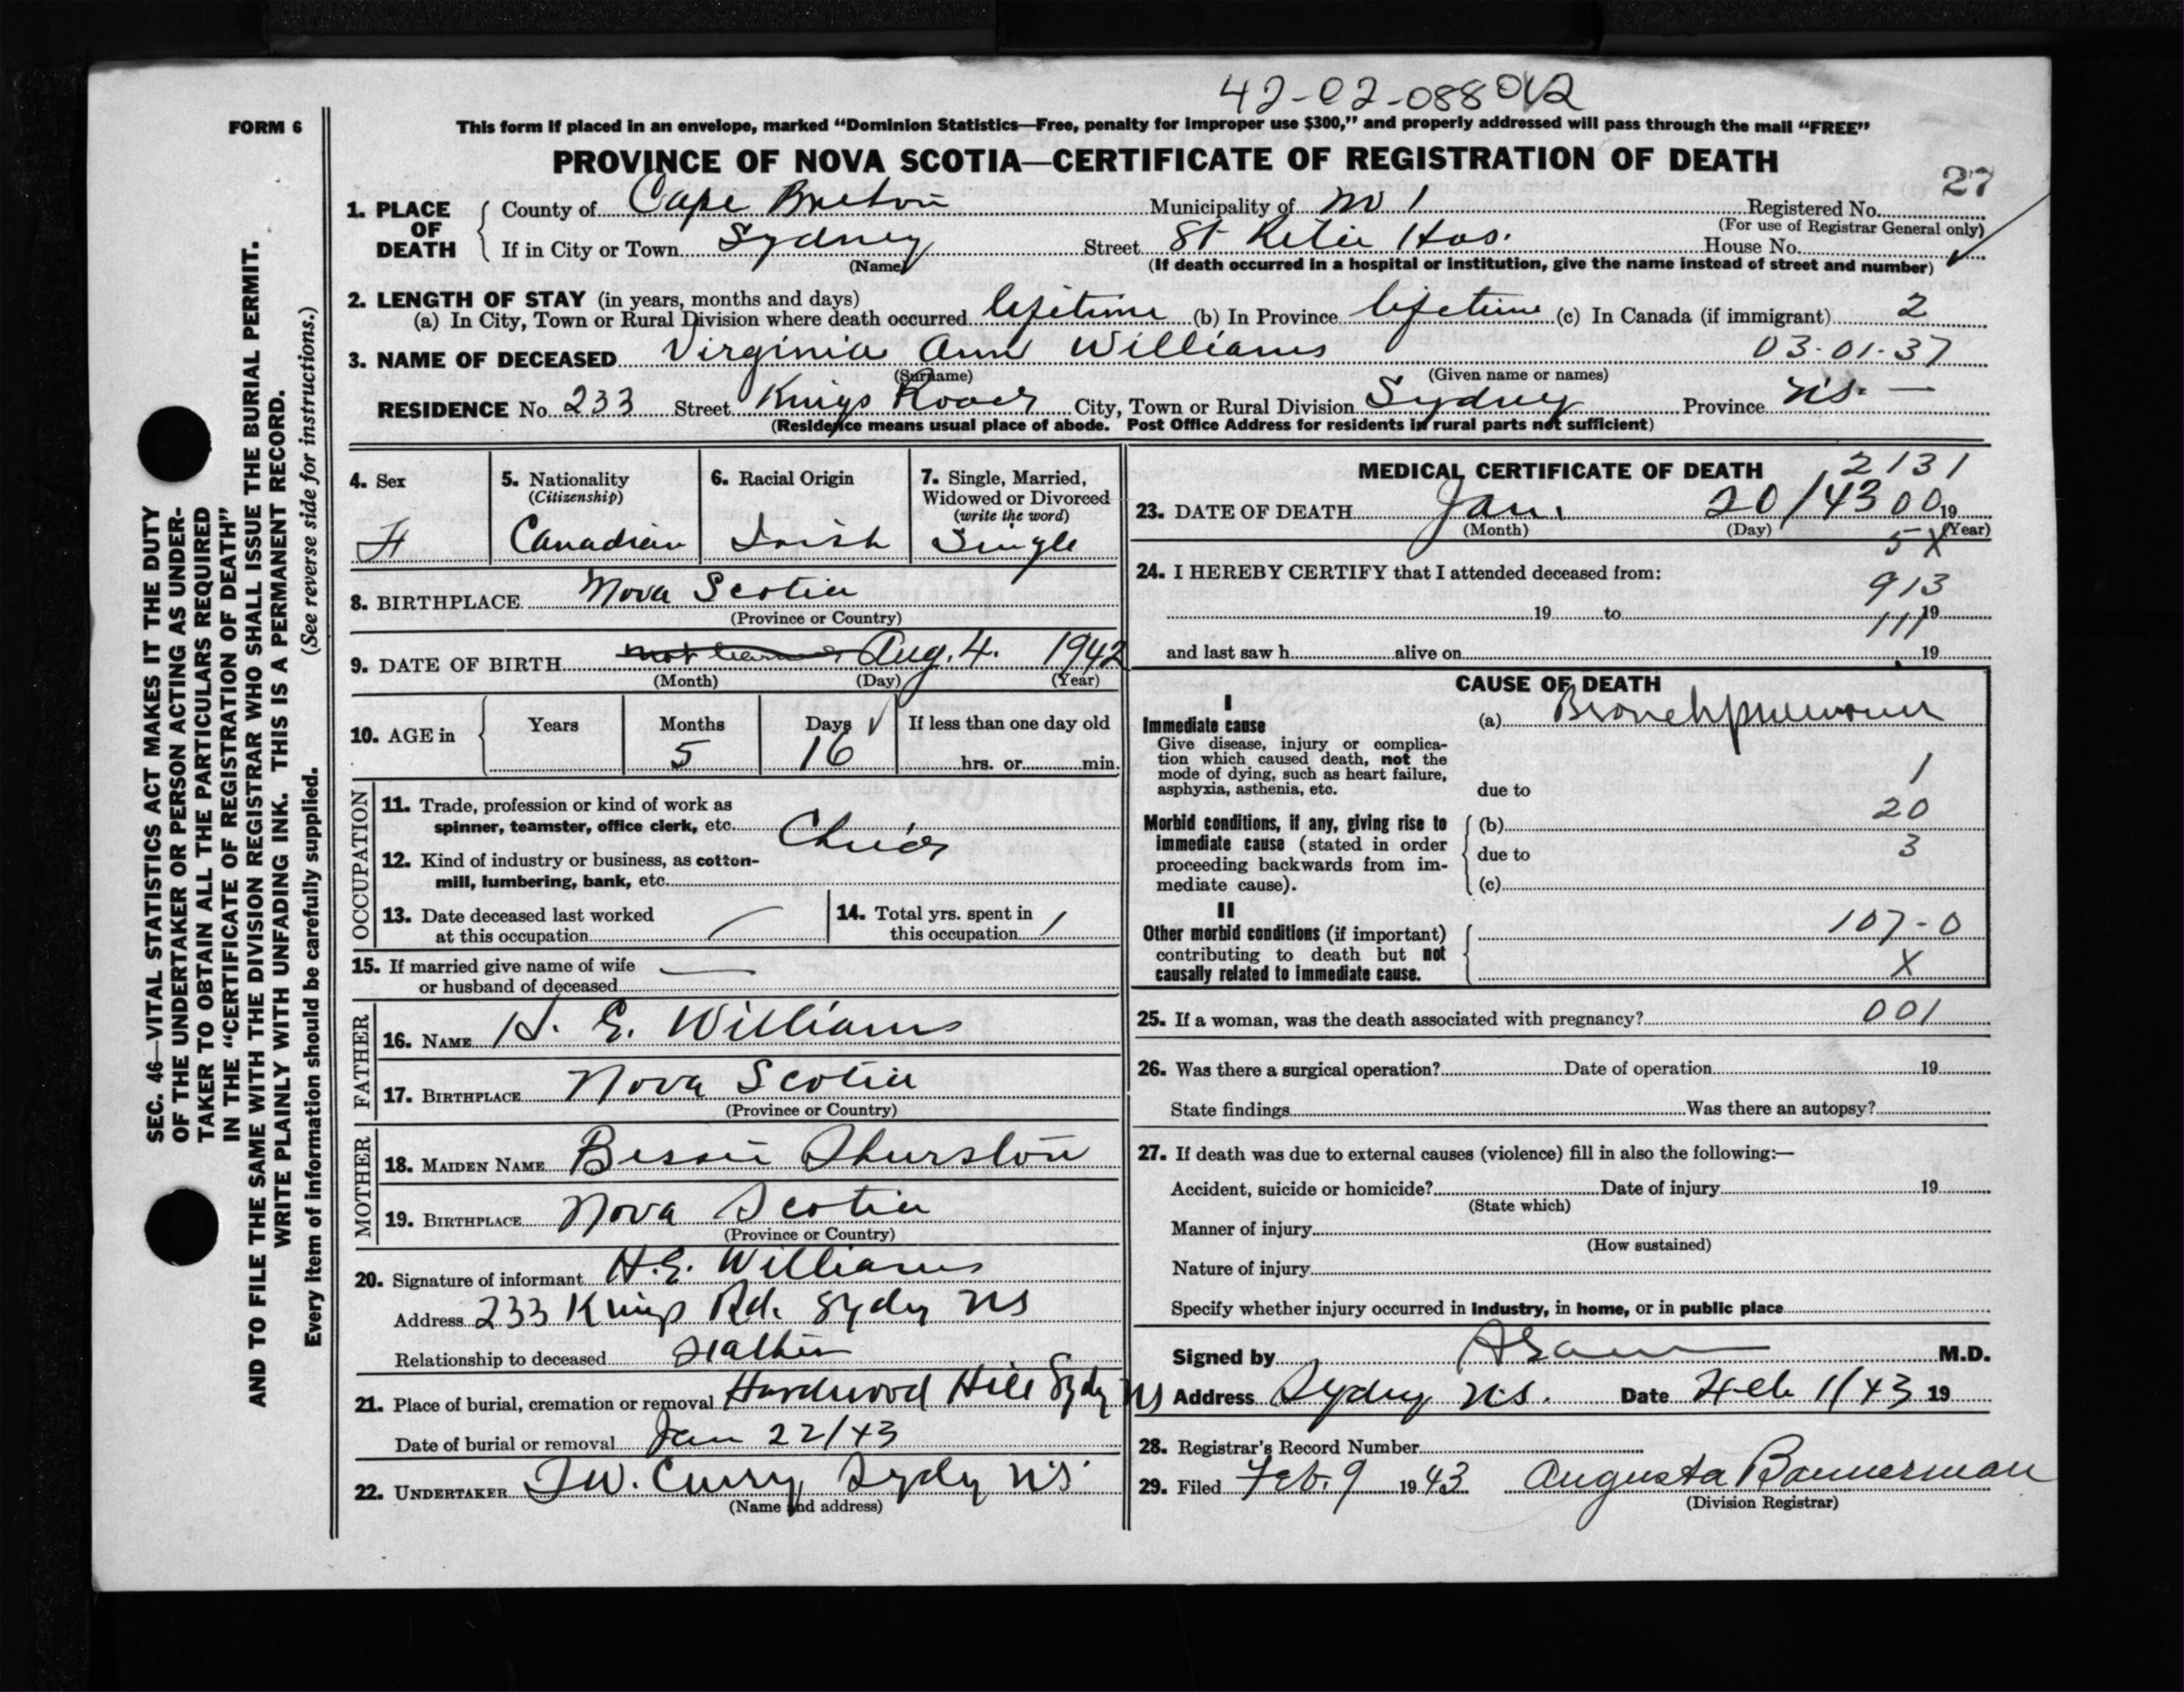 42-02-088012
FORM 6
This form if placed in an envelope, marked "Dominion Statistics—Free, penalty for improper use $300," and properly addressed will pass through the mail "FREE"
PROVINCE OF NOVA SCOTIA—CERTIFICATE OF REGISTRATION OF DEATH
27
1. PLACE OF DEATH
County of Cape Breton Municipality of No 1 Registered No.
(For use of Registrar General only)
If in City or Town Sydney Street St Hos. House No.
(Name) (If death occurred in a hospital or institution, give the name instead of street and number)
2. LENGTH OF STAY (in years, months and days)
(a) In City, Town or Rural Division where death occurred lifetime (b) In Province lifetime (c) In Canada (if immigrant) 2
3. NAME OF DECEASED Virginia Ann Williams 03-01-37
(Surname) (Given name or names)
RESIDENCE No. 233 Street Kings Road City, Town or Rural Division Sydney Province N.S. —
(Residence means usual place of abode. Post Office Address for residents in rural parts not sufficient)
4. Sex
F
5. Nationality
(Citizenship)
Canadian
6. Racial Origin
Irish
7. Single, Married,
Widowed or Divorced
(write the word)
Single
8. BIRTHPLACE Nova Scotia
(Province or Country)
9. DATE OF BIRTH Aug. 4. 1942
(Month) (Day) (Year)
10. AGE in
Years Months Days If less than one day old
5 16 hrs. or min.
OCCUPATION
11. Trade, profession or kind of work as
spinner, teamster, office clerk, etc. Child
12. Kind of industry or business, as cotton-
mill, lumbering, bank, etc.
13. Date deceased last worked
at this occupation
14. Total yrs. spent in
this occupation
15. If married give name of wife
or husband of deceased
FATHER
16. NAME H. E. Williams
17. BIRTHPLACE Nova Scotia
(Province or Country)
MOTHER
18. MAIDEN NAME Bessie Thurston
19. BIRTHPLACE Nova Scotia
(Province or Country)
20. Signature of informant H.E. Williams
Address 233 Kings Rd. Sydney NS
Relationship to deceased Father
21. Place of burial, cremation or removal Hardwood Hill Sydney NS
Date of burial or removal Jan 22/43
22. UNDERTAKER T.W. Curry Sydney N.S.
(Name and address)
MEDICAL CERTIFICATE OF DEATH 2131
23. DATE OF DEATH Jan. 20/43 00 19
(Month) (Day) (Year)
5X
24. I HEREBY CERTIFY that I attended deceased from:
913
19 to 19
111
and last saw h alive on 19
CAUSE OF DEATH
I
Immediate cause
Give disease, injury or complica-
tion which caused death, not the
mode of dying, such as heart failure,
asphyxia, asthenia, etc.
(a) Bronchpneumonia
1
due to
Morbid conditions, if any, giving rise to
immediate cause (stated in order
proceeding backwards from im-
mediate cause).
(b) 20
due to 3
(c)
II
Other morbid conditions (if important)
contributing to death but not
causally related to immediate cause.
107-0
X
25. If a woman, was the death associated with pregnancy? 001
26. Was there a surgical operation? Date of operation 19
State findings Was there an autopsy?
27. If death was due to external causes (violence) fill in also the following:—
Accident, suicide or homicide? Date of injury 19
(State which)
Manner of injury
(How sustained)
Nature of injury
Specify whether injury occurred in industry, in home, or in public place
Signed by M.D.
Address Sydney N.S. Date Feb 1/43 19
28. Registrar's Record Number
29. Filed Feb. 9 1943 Augusta Bannerman
(Division Registrar)
SEC. 46—VITAL STATISTICS ACT MAKES IT THE DUTY
OF THE UNDERTAKER OR PERSON ACTING AS UNDER-
TAKER TO OBTAIN ALL THE PARTICULARS REQUIRED
IN THE "CERTIFICATE OF REGISTRATION OF DEATH"
AND TO FILE THE SAME WITH THE DIVISION REGISTRAR WHO SHALL ISSUE THE BURIAL PERMIT.
WRITE PLAINLY WITH UNFADING INK. THIS IS A PERMANENT RECORD.
Every item of information should be carefully supplied. (See reverse side for instructions.)